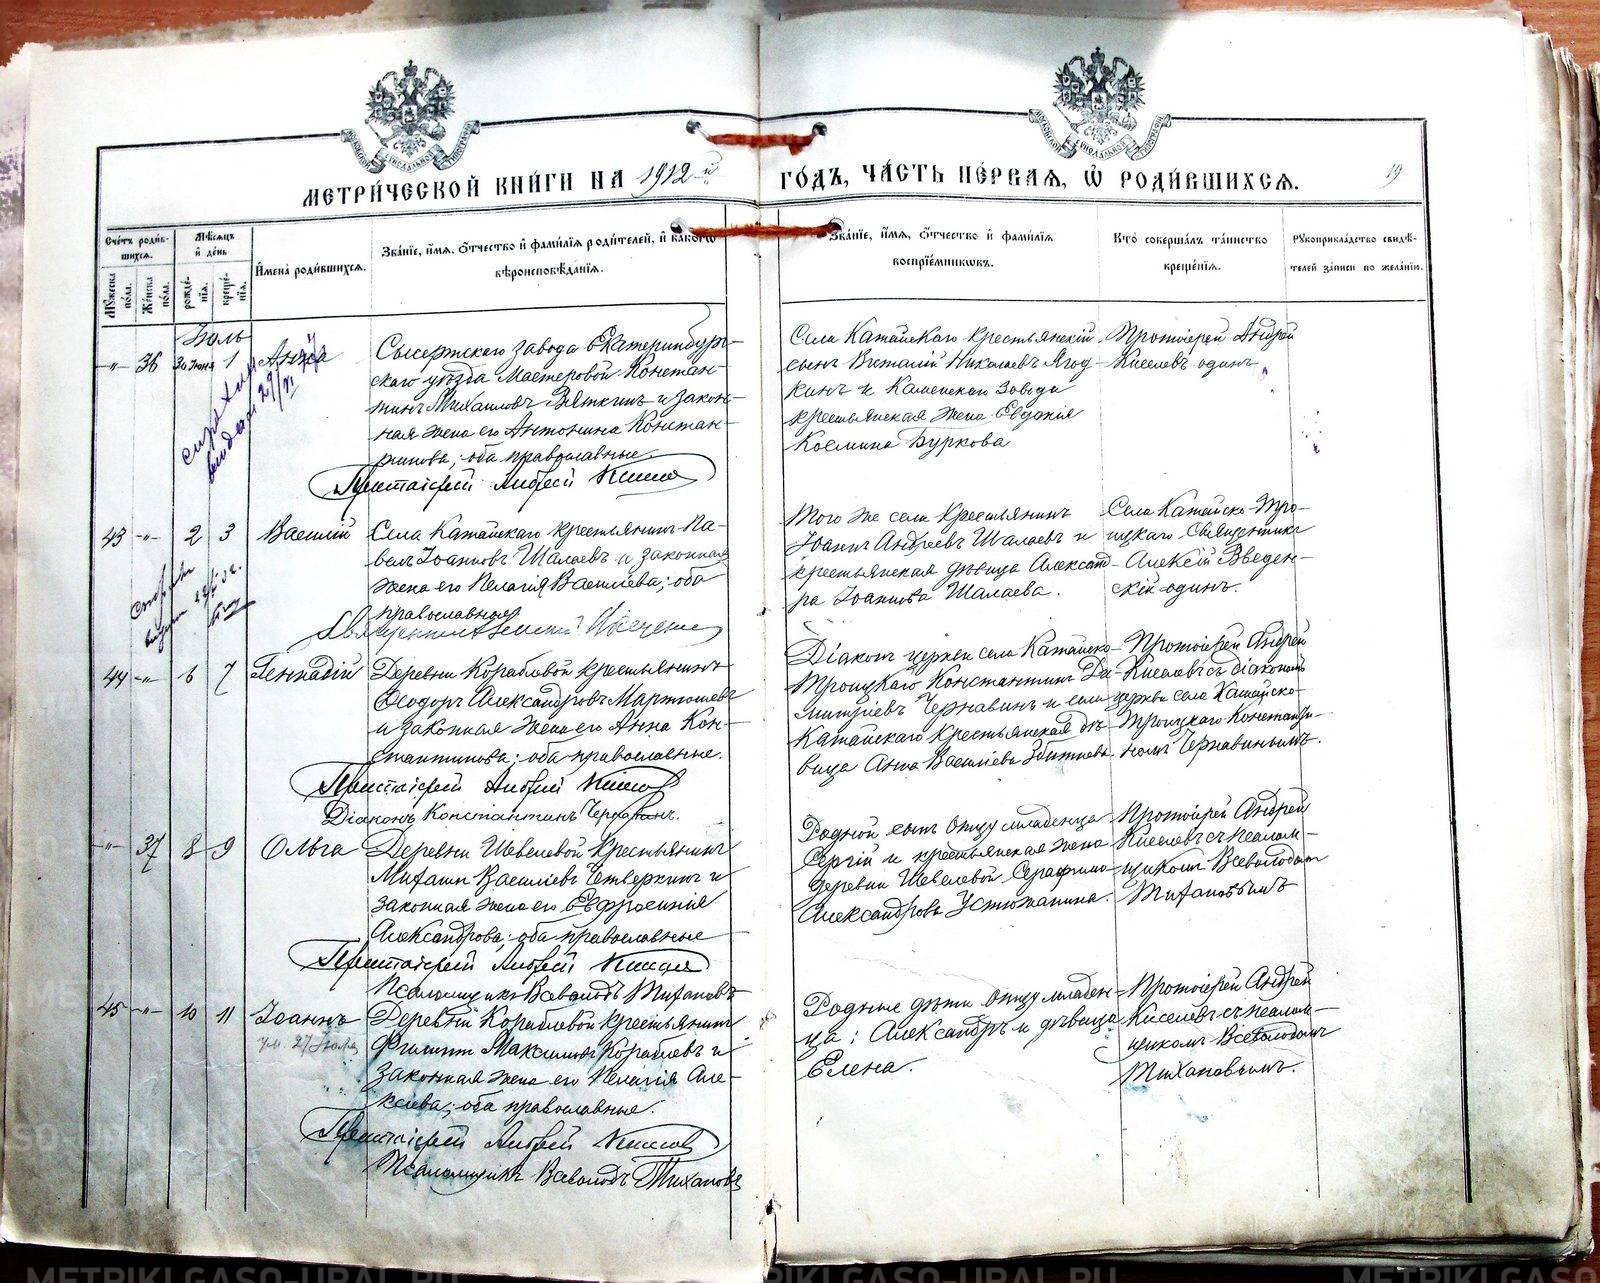 МЕТРИ́ЧЕСКОЙ КНИ́ГИ НА 1912 й ГО́ДЪ, ЧА́СТЬ ПЕ́РВАЯ, Ѡ РОДИ́ВШИХСЯ.
19
Сче́тъ роди́в-
шихся.
Му́жеска по́ла.
Же́нска по́ла.
Мѣ́сяцъ
и҆ де́нь
рожде́нїя.
креще́нїя.
И҆мена̀ роди́вшихся.
Зва́нїе, и҆́мя, ѻ҆́тчество и҆ фами́лїя роди́телей, и҆ како́гѡ
вѣроисповѣ́данїя.
Зва́нїе, и҆́мя, ѻ҆́тчество и҆ фами́лїя
воспрїе́мникѡвъ.
Кто̀ соверша́лъ та́инство
креще́нїя.
Рꙋкоприкла́дство свидѣ́-
телей за́писи по жела́нїю.
Іюль
-"- 36 30 Іюня 1 Анна
Сысертскаго завода Екатеринбург-
скаго уѣзда Мастеровой Констан-
тинъ Михаиловъ Вяткинъ и закон-
ная жена его Антонина Констан-
тинова; оба православные.
Протоіерей Андрей Киселевъ
Села Катайскаго крестьянскій
сынъ Виталій Николаевъ Ягод-
кинъ и Каменскаго Завода
крестьянская жена Евдокія
Косьмина Буркова
Протоіерей Андрей
Киселевъ одинъ
43 -"- 2 3 Василій
Села Катайскаго крестьянинъ Па-
велъ Іоанновъ Шалаевъ и законная
жена его Пелагія Васильева; оба
православные
Того же села крестьянинъ
Іоаннъ Андреевъ Шалаевъ и
крестьянская дѣвица Александ-
ра Іоаннова Шалаева.
Села Катайско-Тро-
ицкаго Священникъ
Алексій Введен-
скій одинъ.
44 -"- 6 7 Геннадій
Деревни Корабловой крестьянинъ
Ѳеодоръ Александровъ Мартюшевъ
и законная жена его Анна Кон-
стантинова; оба православные.
Протоіерей Андрей Киселевъ
Діаконъ Константинъ Чернавинъ.
Діаконъ церкви села Катайско-
Троицкаго Константинъ Ди-
митріевъ Чернавинъ и села
Катайскаго крестьянская дѣ-
вица Анна Васильева
Протоіерей Андрей
Киселевъ съ діакономъ
церкви села Катайско-
Троицкаго Константи-
номъ Чернавинымъ.
-"- 37 8 9 Ольга
Деревни Шевелевой крестьянинъ
Михаилъ Васильевъ Четверкинъ и
законная жена его Евфросинія
Александрова; оба православные
Протоіерей Андрей Киселевъ
Псаломщикъ Всеволодъ Тихановъ
Родной сынъ отцу младенца
Сергій и крестьянская жена
деревни Шевелевой Серафима
Александрова Устюжанина.
Протоіерей Андрей
Киселевъ съ псалом-
щикомъ Всеволодомъ
Тихановымъ
45 -"- 10 11 Іоаннъ
ум. 27 Іюля
Деревни Корабловой крестьянинъ
Филиппъ Максимовъ Кораблевъ и
законная жена его Пелагія Але-
ксіева; оба православные.
Протоіерей Андрей Киселевъ
Псаломщикъ Всеволодъ Тихановъ
Родные дѣти отцу младен-
ца: Александръ и дѣвица
Елена.
Протоіерей Андрей
Киселевъ съ псалом-
щикомъ Всеволодомъ
Тихановымъ.
METRIKI.GASO-URAL.RU